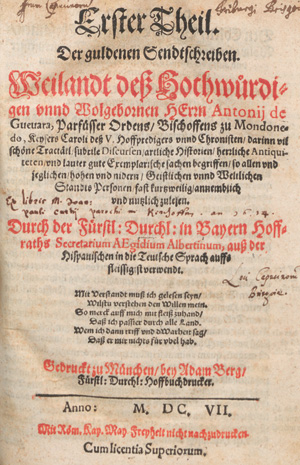 Erster Theil.
Der guldenen Sendtschreiben.
Weilandt deß Hochwürdi-
gen vnnd Wolgebornen HErrn Antonij de
Gueuara, Parfüsser Ordens, Bischoffens zu Mondone-
do, Keysers Caroli deß V. Hoffpredigers vnnd Chronisten, darinn vil
schöne Tractätl, subtile Discursen, artliche Historien, herrliche Antiqui-
teten, vnd lauter gute Exemplarische sachen begriffen, so allen vnd
jeglichen, hohen vnd nidern, Geistlichen vnnd Weltlichen
Standts Personen, fast kurtzweilig, annemblich
vnd nutzlich zulesen.
Ex libris M.
Durch der Fürstl: Durchl: in Bayern Hoff-
raths Secretarium AEgidium Albertinum, auß der
Hispanischen in die Teutsche Sprach auffs
fleissigst verwendt.
Mit Verstandt muß ich gelesen seyn,
Wilstu verstehen den Willen mein.
So merck auff mich mit fleiß zuhand,
Daß ich passier durch alle Land.
Wem ich dann triff vnd dWarheit sag,
Daß er mir nichts für vbel hab.
Gedruckt zu München, bey Adam Berg,
Fürstl: Durchl: Hoffbuchdrucker.
Anno: M. DC. VII.
Mit Röm. Kay. May. Freyheit nicht nachzudrucken.
Cum licentia Superiorum.